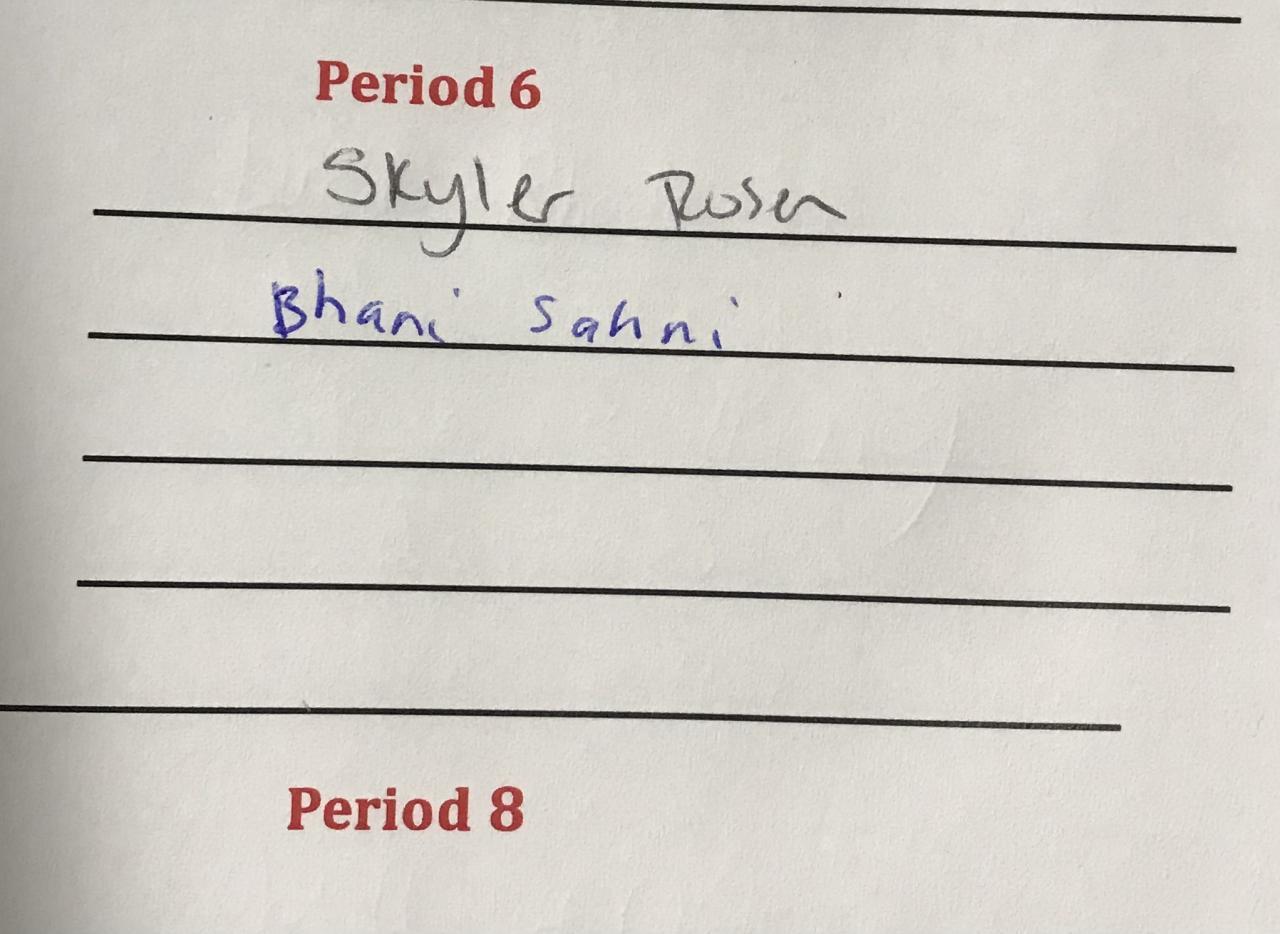 Period 6
Skyler Rosen
Bhani Sahni
Period 8